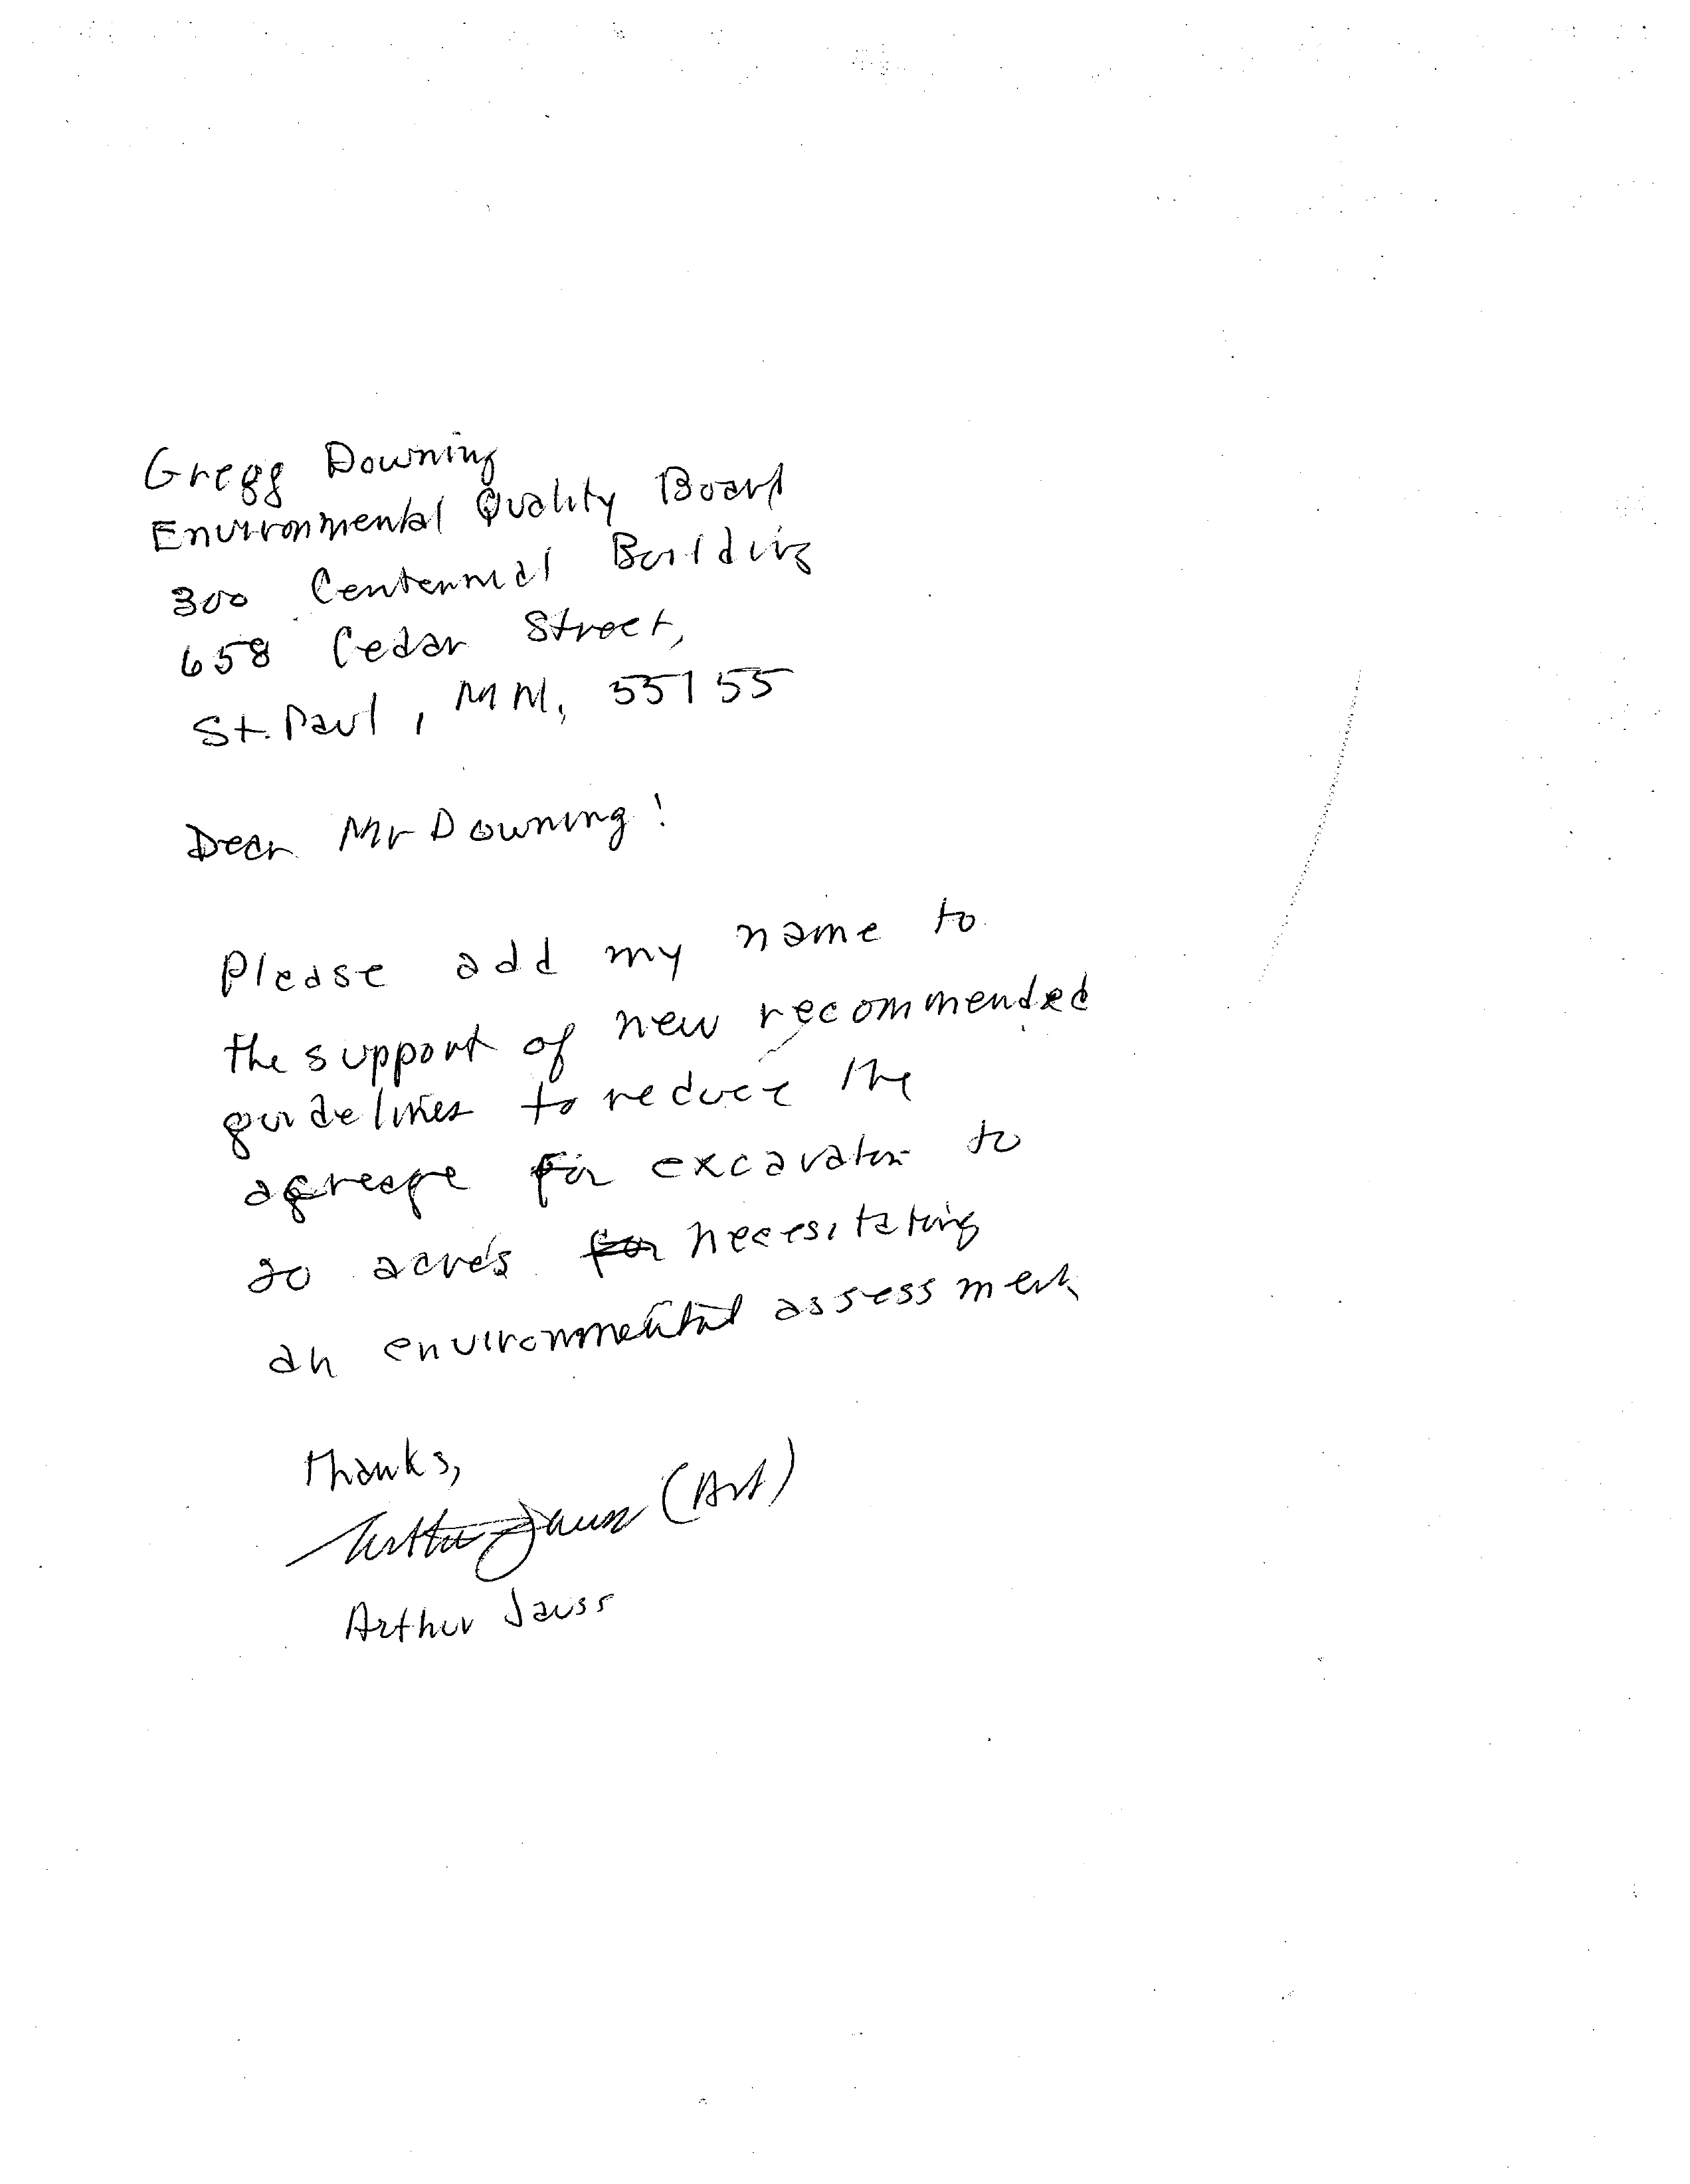 Gregg Downing
Environmental Quality Board
300 Centennial Building
658 Cedar Street,
St. Paul, MN, 55155
Dear Mr Downing!
Please add my name to
the support of new recommended
guidelines to reduce the
for excavation to
20 acres for necesitating
an environmental assessment
thanks,
Arthur Jauss (Art)
Arthur Jauss